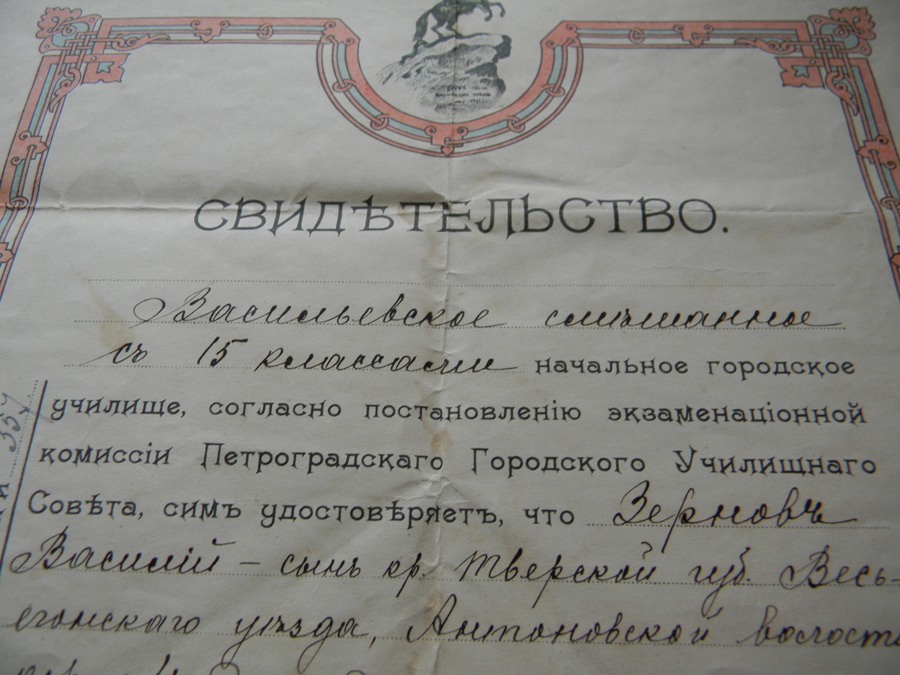 СВИДѢТЕЛЬСТВО.
Васильевское смѣшанное
съ 15 классами начальное городское
училище, согласно постановленію экзаменаціонной
комиссіи Петроградскаго Городского Училищнаго
Совѣта, симъ удостовѣряетъ, что Зерновъ
Василій – сынъ кр. Тверской губ. Весь-
егонскаго уѣзда, Антоновской волости
357